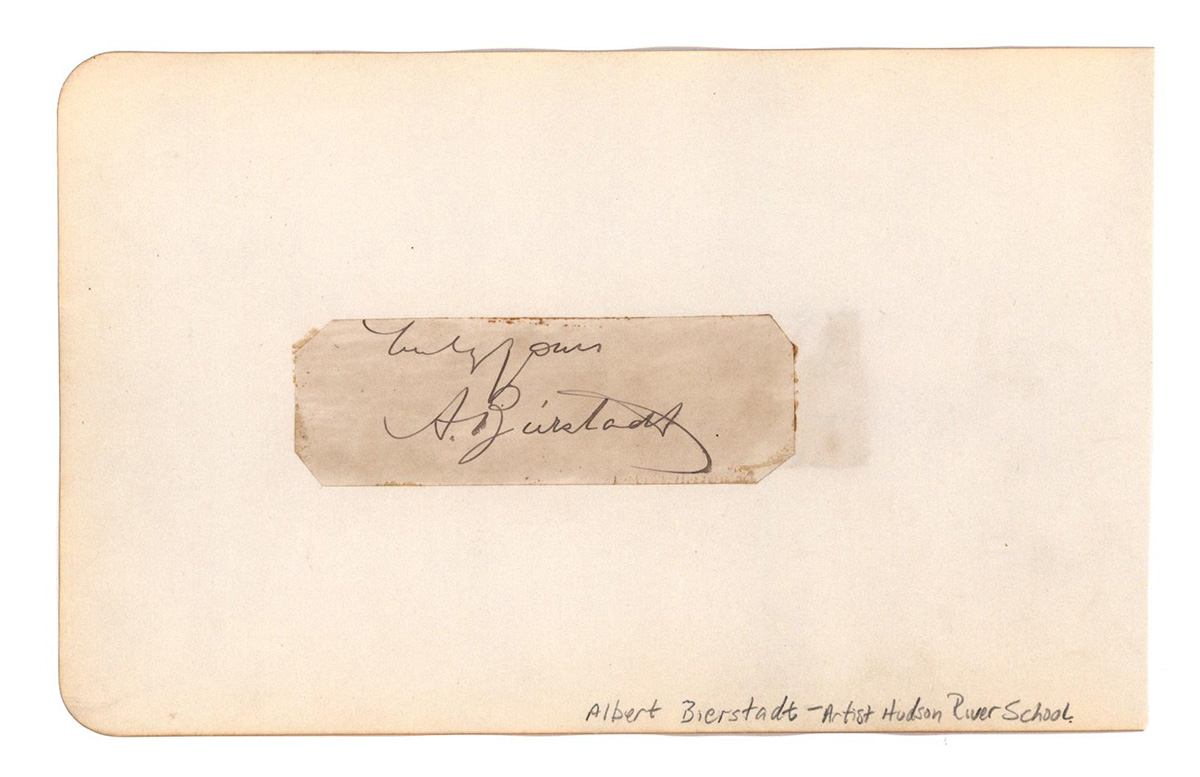 Truly yours
A. Bierstadt
Albert Bierstadt - Artist Hudson River School.